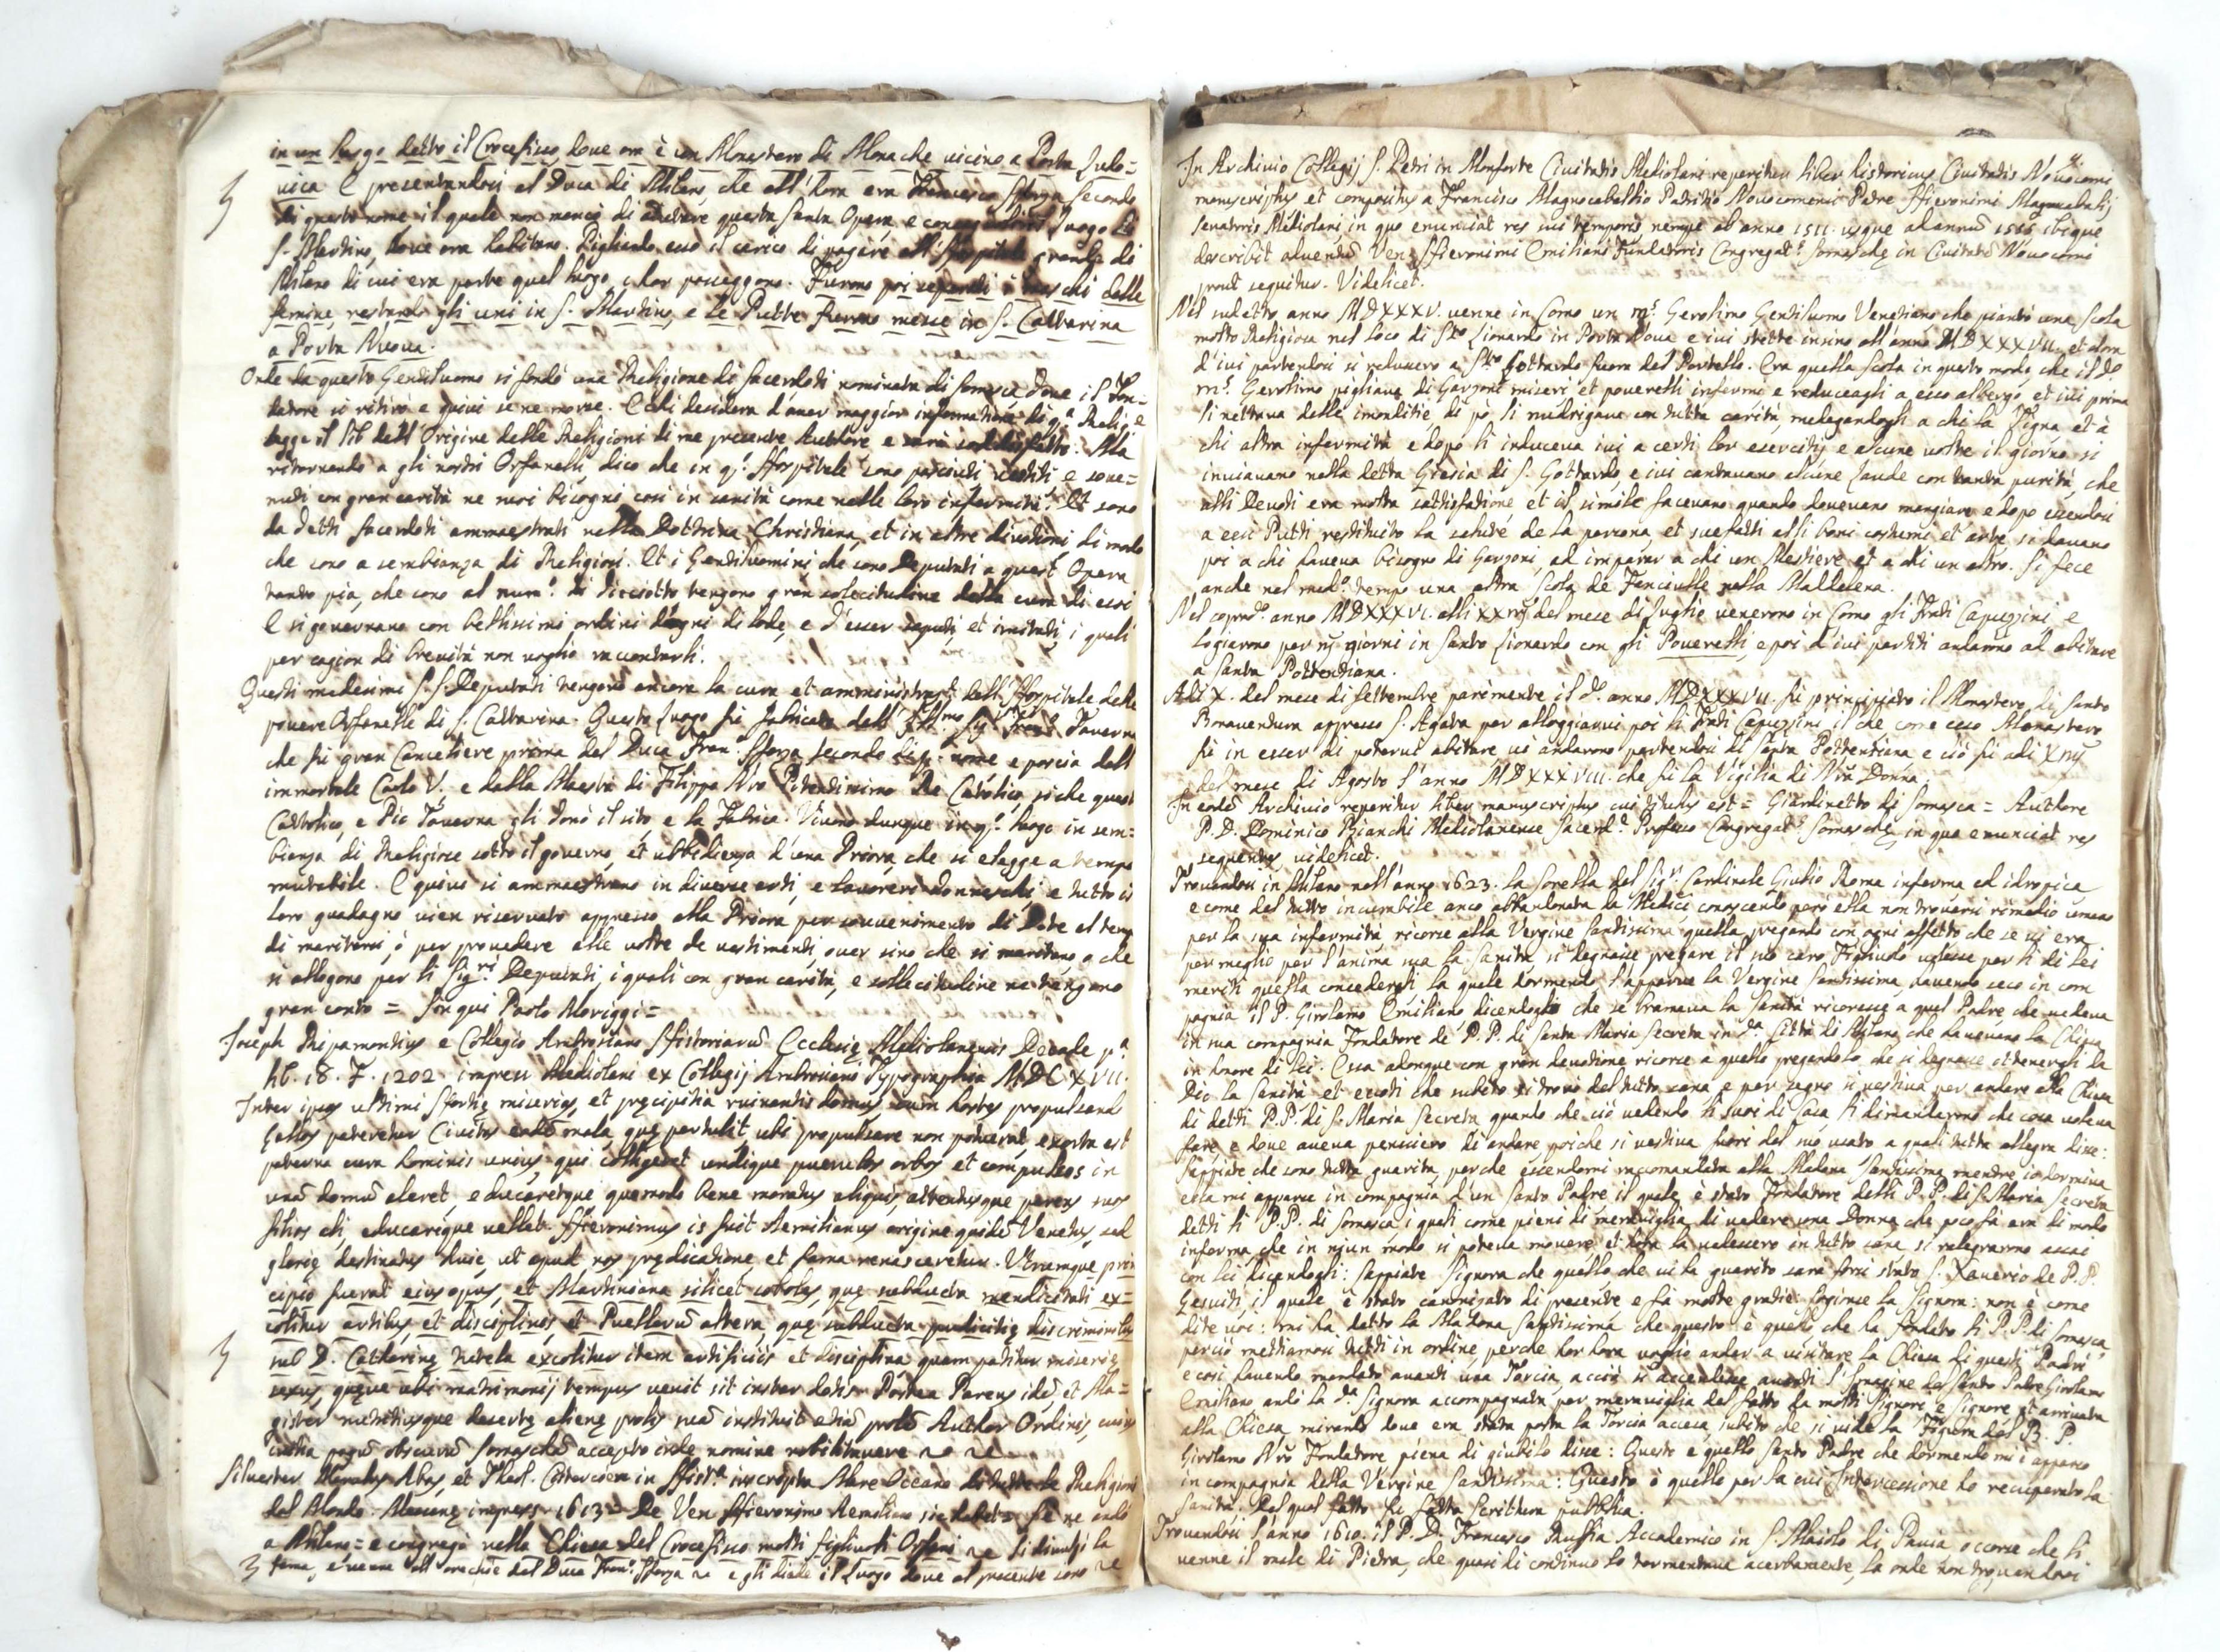 in un luogo detto il Crocefisso, dove ora è un Monastero di Monache vicino a Porta Ludo=
vica E presentandosi al Duca di Milano, che all'hora era Francesco Sforza Secondo
di questo nome, il quale non mancò di aiutare questa Santa Opera, e luogo di
S. Martino, dove ora habitano. Pigliando esso il carico di pagare all'Hospitale grande di
Milano di cui era parte quel luogo, c'hor posseggono. Furono poi separati i maschi dalle
femine, restando gli uni in S. Martino, e le Putte furono messe in S. Catterina
a Porta Nuova.
Onde da questo Gentilhuomo si fondò una Religione di Sacerdoti nominata di Somasca dove il Fon=
datore si ritirò e quivi se ne morse. E chi desidera d'aver maggior informatione di q.a Relig.e
legga il lib dell'Origine delle Religioni di me presente Authore, e sarà sodisfatto. Ma
ritornando a gli nostri Orfanelli, dico che in q.o Hospitale sono pasciuti vestiti e sove=
nuti con gran carità ne suoi bisogni così in sanità come nelle loro infermità. Et sono
da detti Sacerdoti ammaestrati nella Dottrina Christiana, et in altre divotioni di modo
che sono a sembianza di Religiosi. Et i Gentilhuomini, che sono Deputati a quest'Opera
tanto pia, che sono al num.o di dieciotto tengono gran solecitudine della cura di essi
E si governano con bellissimi ordini degni di lode, e d'esser saputi et imitati, i quali
per cagion di brevità non voglio raccontarli.
Questi medesimi S.S. Deputati tengono ancora la cura et amministrat.e dell'Hospitale delle
povere Orfanelle di S. Catterina. Questo luogo fu fabricato dall'Ill.mo Sig.r Fran.co Taverna
che fu gran Cancelliere prima del Duca Fran.o Sforza Secondo di q.o nome e poscia dell'
immortale Carlo V. e dalla Maestà di Filippo N'ro Potentissimo Re Catolico, sì che questo
Cattolico, e Pio Taverna gli donò il sito, e la Fabrica. Vivono dunque in q.o luogo in sem=
bianza di Religiose sotto il governo, et ubbidienza d'una Priora, che si elegge a tempo
mutabile. E quivi si ammaestrano in diverse arti, e lavoreri donneschi, e tutto il
loro guadagno vien riservato appresso alla Priora per sovvenimento di Dote al tempo
di maritarsi, ò per provedere alle volte de vestimenti, over sino che si maritano, o che
si allogano per li Sig.ri Deputati, i quali con gran carità, e sollecitudine ne tengono
gran conto = Sin qui Paolo Moriggi =
Joseph Ripamontius e Collegio Ambrosiano Historiarū Ecclesię Mediolanensis Decade p.a
lib. 18. F. 1202. impress. Mediolani ex Collegij Ambrosiani Typographia MDCXVII.
Inter ipsas ultimi Sfortię miserias, et pręcipitia ruinantis domus, cum hostes propulsando
Gallos pateretur Civitas eadē mala, quę pertulit, ubi propulsare non poterat, exorta est
paterna cura hominis unius, qui colligeret undique puerulos orbos, et compulsos in
unā domū aleret, educaretque quemodo bene moratus aliquis, attentusque parens suos
filios ali, educarique vellet. Hieronimus is fuit Aemilianus origine quidē Venetus, sed
glorię destinatus huic, ut apud nos prędicatione et fama renasceretur. Utrumque prin
cipio fuerat eius opus, et Martiniana scilicet soboles, quę subducta mendicitati ex=
colitur artibus, et disciplinis, et Puellarū altera, quę subducta pudicitię discriminibus
sub D. Catterinę tutela excolitur item artificiis et disciplina quam patitur miserię
sexus, quęve ubi matrimonij tempus venit sit instar dotis. Porrea Parens idē et Ma=
gister nutritiusque desertę alienę prolis suā instituit etiā prolē Auctor Ordinis, cuius
initia pagus obscurū Somaschā accepto inde nomine nobilitavere
Silvester Abbas, et Theol. in Hist.a inscripta Mare Oceano di tutte le Religioni
del Mondo. Messanę impress. 1613 = De Ven Hieronimo Aemiliano sic habet = Se ne andò
a Milano = e congregò nella Chiesa del Crocefisso molti figliuoli Orfani si divulgò la
fama, e venne all'orecchie del Duca Fran.o Sforza e gli diede il luogo dove al presente sono
In Archivio Collegij S. Petri in Monforte Civitatis Mediolani reperitur liber historicus Civitatis Novocomi
manuscriptus et compositus a Francisco Magnocaballio Patritio Novocomensi Patre Hieronimi Magnocaballij
Senatoris Mediolani in quo enunciat res sui temporis nempe ab anno 1511. usque ad annū 1555 ibique
describit adventū Ven. Hieronimi Emiliani Fundatoris Congregat.s Somaschę in Civitatē Novocomi
prout sequitur. Videlicet.
Nel subetto anno MDXXXV. venne in Como un m.r Gerolimo Gentiluomo Venetiano che piantò una Scola
molto Religiosa nel loco di S.to Lionardo in Porta Nova e ivi stette insino all'anno MDXXXVII. et alora
d'ivi partendosi si redussero a S.to Gottardo fuora del Portello. Era questa Scola in questo modo, che il d.o
m.r Gerolimo pigliava di Garzoni miseri et poveretti infermi e reduceagli a esso albergo, et ivi prima
li nettava delle imonditie di pò li nudrigava con tutta carità medegandogli a chi la Tigna et à
chi altra infermità e dopo li induceva ivi a certi lor esercitij e alcune volte il giorno si
inviavano nella detta Gresia di S. Gottardo, e ivi cantavano alcune Laude con tanta purità, che
alli Devoti era molta sattisfatione et il simile facevano quando dovevano mangiare e dopo essendosi
a essi Putti restituito la salute de la persona et suefatti alli boni costumi, et arte si davano
poi a chi haveva bisogno di Garzoni, ad imparar a chi un Mestiere et a chi un altro. Si fece
anche nel med.o tempo una altra Scola de Fanciulle nella Maddalena.
Nel soprad.o anno MDXXXVI. alli XXIIIJ del mese di Luglio venerono in Como gli Frati Capuzzini e
logiarono per IIJ giorni in Santo Lionardo con gli Poveretti, e poi d'ivi partiti andarono ad abitare
a Santa Pottentiana.
Adì X. del mese di Settembre parimente il d.o anno MDXXXVII. fu principiato il Monastero di Santo
Bonaventura appresso S. Agata per alloggiarvi poi li Frati Capuzzini, il che come esso Monastero
fu in esser di potervi abitare, vi andarono partendosi di Santa Pottentiana, e ciò fu adì XIIIJ
del mese di Agosto l'anno MDXXXVIII. che fu la Vigilia di N'ra Donna.
In eodē Archivio reperitur liber manuscriptus cui titulus est = Giardinetto di Somasca = Auctore
P. D. Dominico Bianchi Mediolanense Sacerd.e Professo Congregat.s Somaschę, in quo enunciat res
sequentes videlicet.
Trovandosi in Milano nell'anno 1623. la Sorella del Sig.r Cardinale Giulio Roma inferma ed idropica
e come del tutto incurabile anco abbandonata da Medici, conoscendo però ella non trovarsi rimedio umano
per la sua infermità ricorse alla Vergine Santissima quella pregando con ogni affetto che se vi era
per meglio per l'anima sua la Sanità si degnasse pregare il suo caro Figliuolo volesse per li di Lei
meriti questa concedergli la quale dormendo l'apparve la Vergine Santissima, havendo seco in com
pagnia il P. Girolamo Emiliano dicendogli che se bramava la Sanità ricoresse a quel Padre che vedeva
in sua compagnia Fondatore de P.P. di Santa Maria Secreta in d.a Città di Milano, che havevano la Chiesa
in honore di Lei. Essa adonque con gran devotione ricorse a quello pregandolo che si degnasse ottenergli da
Dio la Sanità et eccoti che subito si trovò del tutto sana e per segno si vestiva per andare alla Chiesa
di detti P.P. di S. Maria Secreta, quando che ciò vedendo li suoi di Casa, li dimandarono che cosa voleva
fare e dove aveva pensiero di andare poiche si vestiva fuori del suo usato a quali tutta allegra disse:
Sappiate che sono tutta guarita, perche essendomi raccomandata alla Madona Santissima, mentre io dormiva
essa mi apparve in compagnia d'un Santo Padre il quale è stato Fondatore delli P.P. di S. Maria Secreta
detti li P.P. di Somasca, i quali come pieni di meraviglia di vedere una Donna, che poco fa era di modo
inferma che in niun modo si poteva movere et hora la vedessero in tutto sana, si ralegrarono assai
con lei dicendogli: Sappiate Signora che quello che vi ha guarito sarà forsi stato S. Xaverio de P.P.
Gesuiti, il quale è stato canonizato di presente e fa molte gratie: sogionse la Signora: non è come
dite voi: mi ha detto la Madona Santissima che questo è quello che ha fondato li P.P. di Somasca
perciò mettiamosi tutti in ordine perche hor hora voglio andar a visitare la Chiesa di questi Padri
e così havendo mandato avanti una Torcia, acciò si accendesse avanti l'Imagine del Santo Padre Girolamo
Emiliano andò la d.a Signora accompagnata per meraviglia del fatto da molti Signori e Signore, et arrivata
alla Chiesa, mirando dove era stata posta la Torcia accesa, subito che si vide la Figura del B. P.
Girolamo N'ro Fondatore piena di giubilo disse: Questo è quello Santo Padre che dormendo mi è apparso
in compagnia della Vergine Santissima: Questo è quello per la cui Intercessione ho recuperato la
Sanità. Del qual fatto fu fatta Scrittura publica.
Trovandosi l'anno 1610. il P. D. Francesco Accademico in S. Maiolo di Pavia occorse che li
venne il male di Pietra, che quasi di continuo lo tormentava acerbamente, la onde non trovandosi